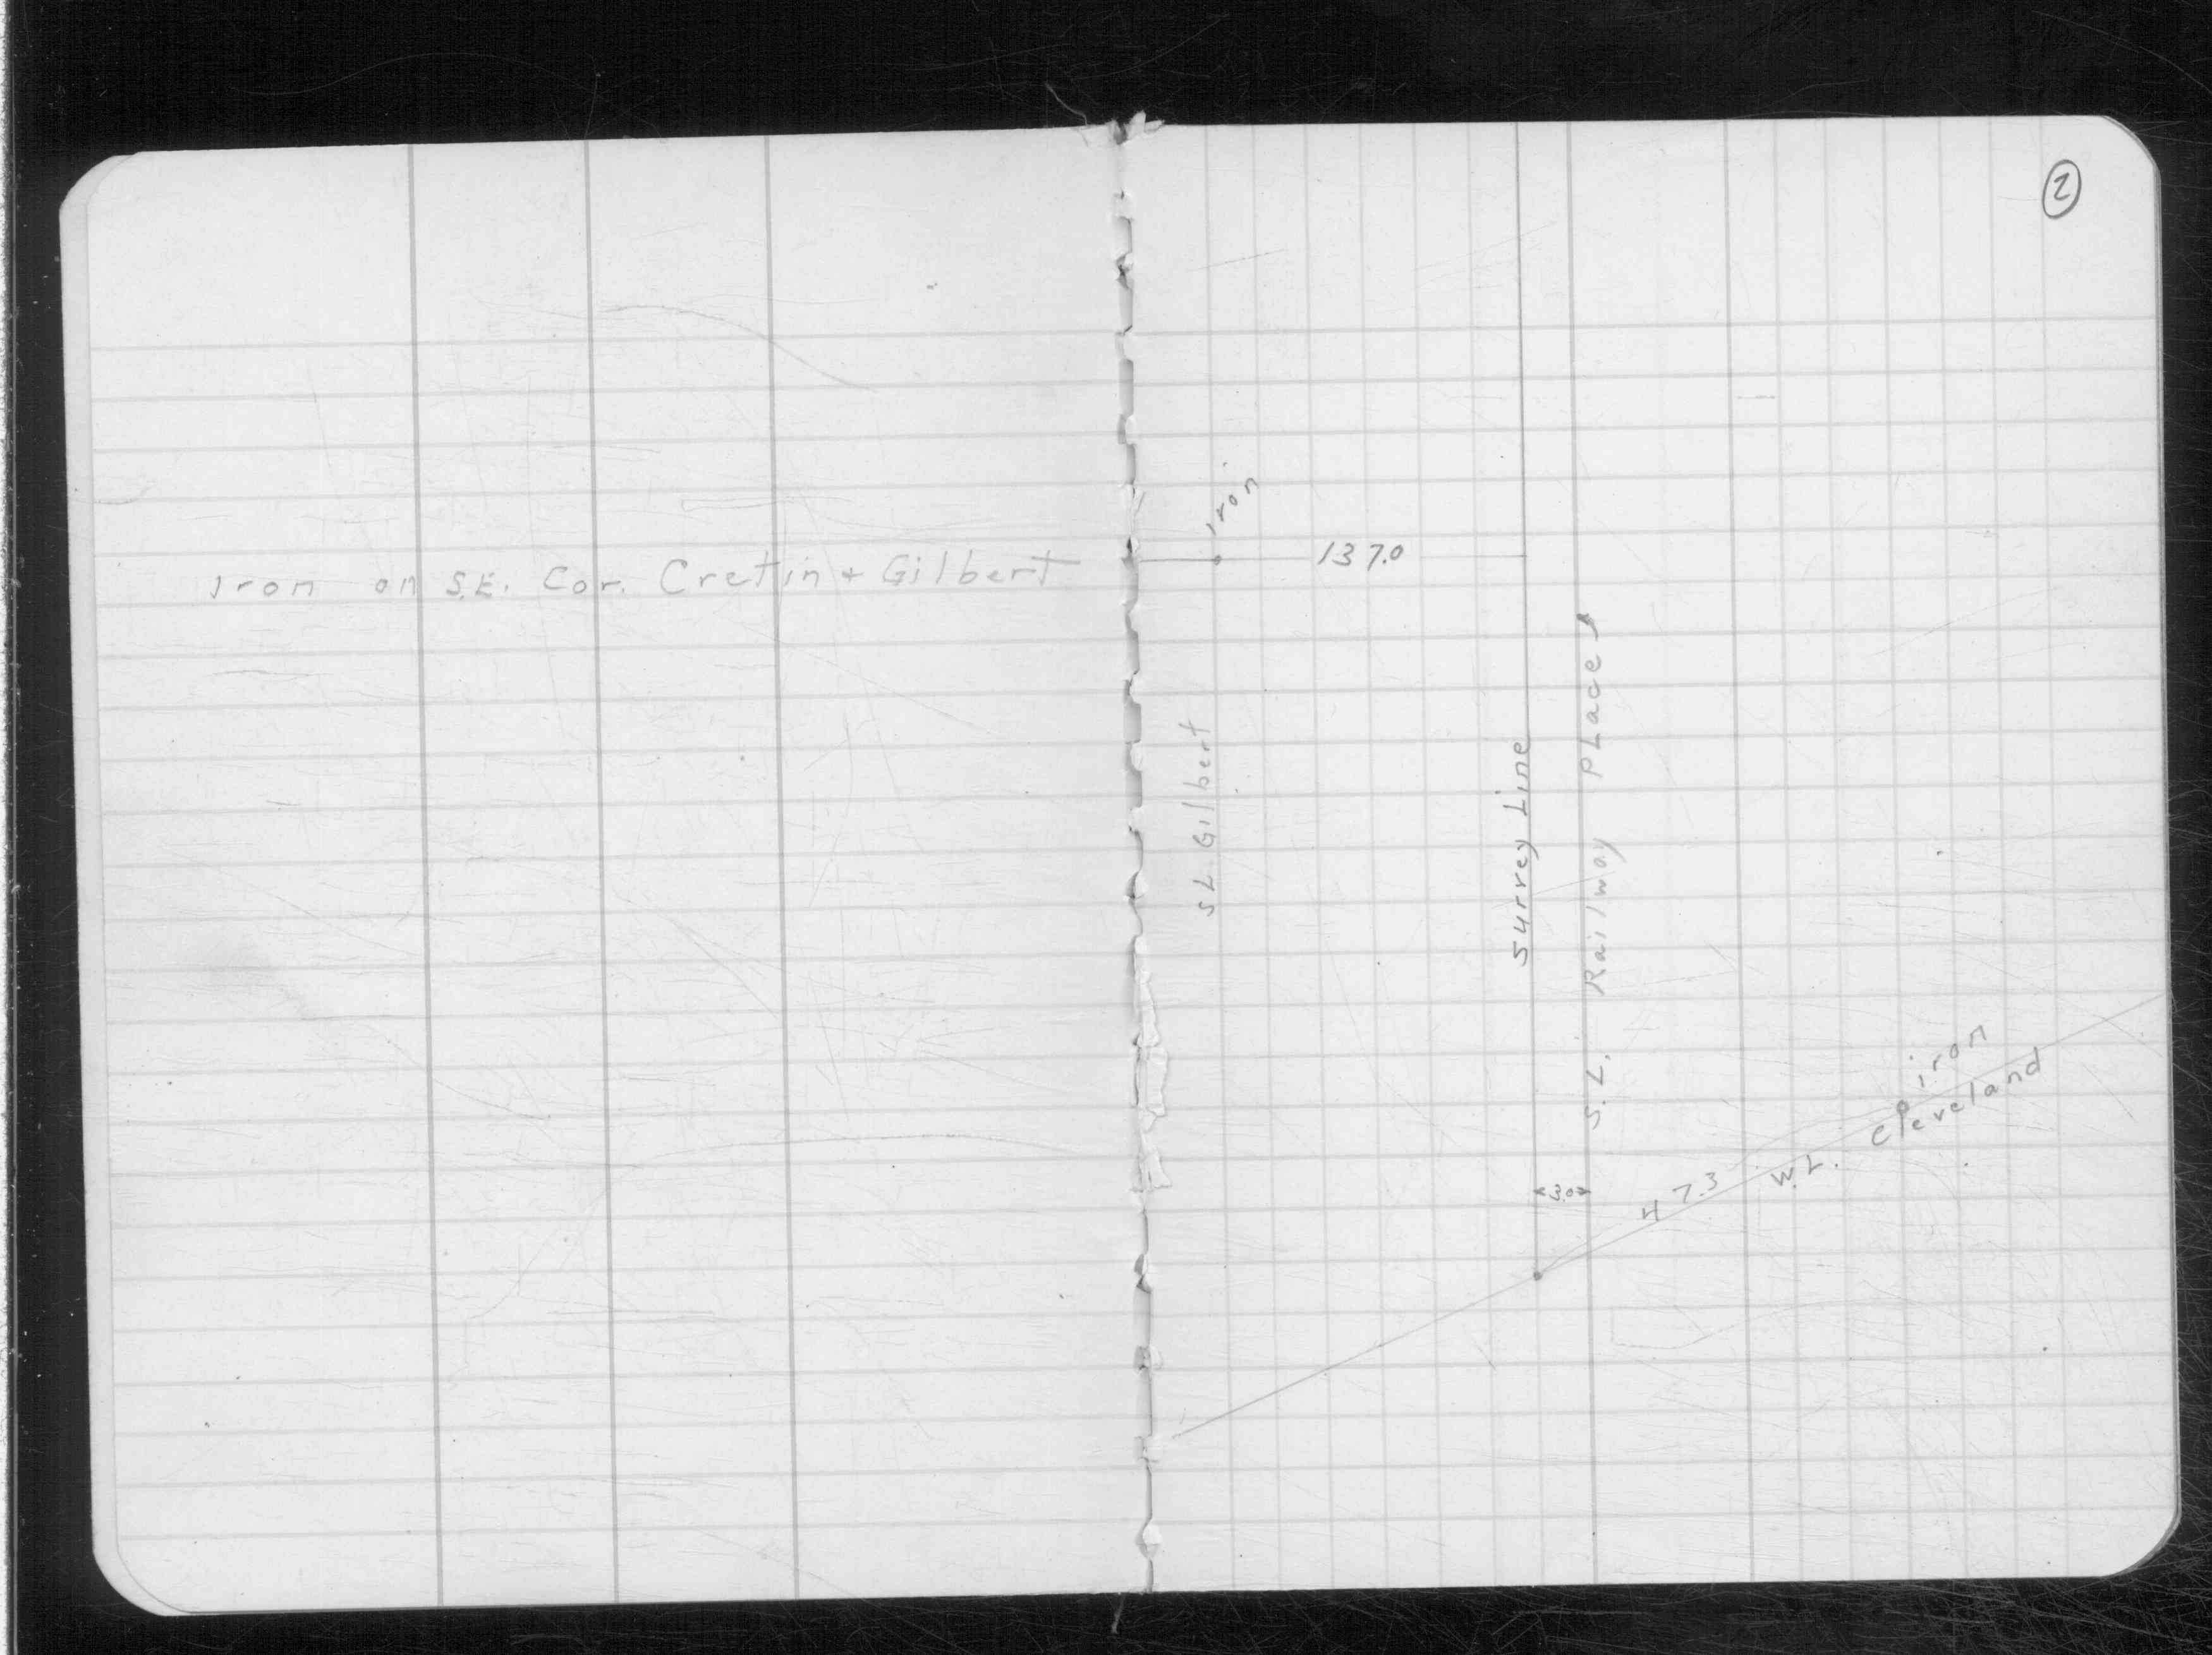 2
Iron on S.E. Cor. Cretin + Gilbert
iron
137.0
S L Gilbert
Survey Line
S.L. Railway PLace
3.0
47.3
W.L. Cleveland
iron